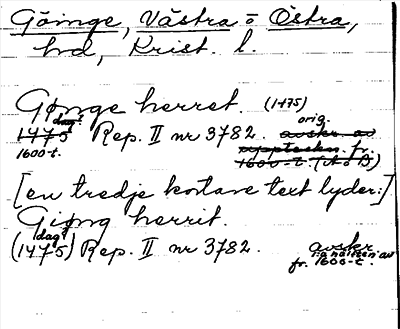 Göinge, Västra o Östra,
hd, Krist. l.
Gønge herret. (1475)
dag? orig.
1475 Rep. II nr 3782. avskr. av
1600-t. uppteckn. fr.
1600-t. (A o B)
[en tredje kortare text lyder:]
Giøng herrit.
dag?
(1475) Rep. II nr 3782. avskr.
1:a hälften av
fr. 1600-t.